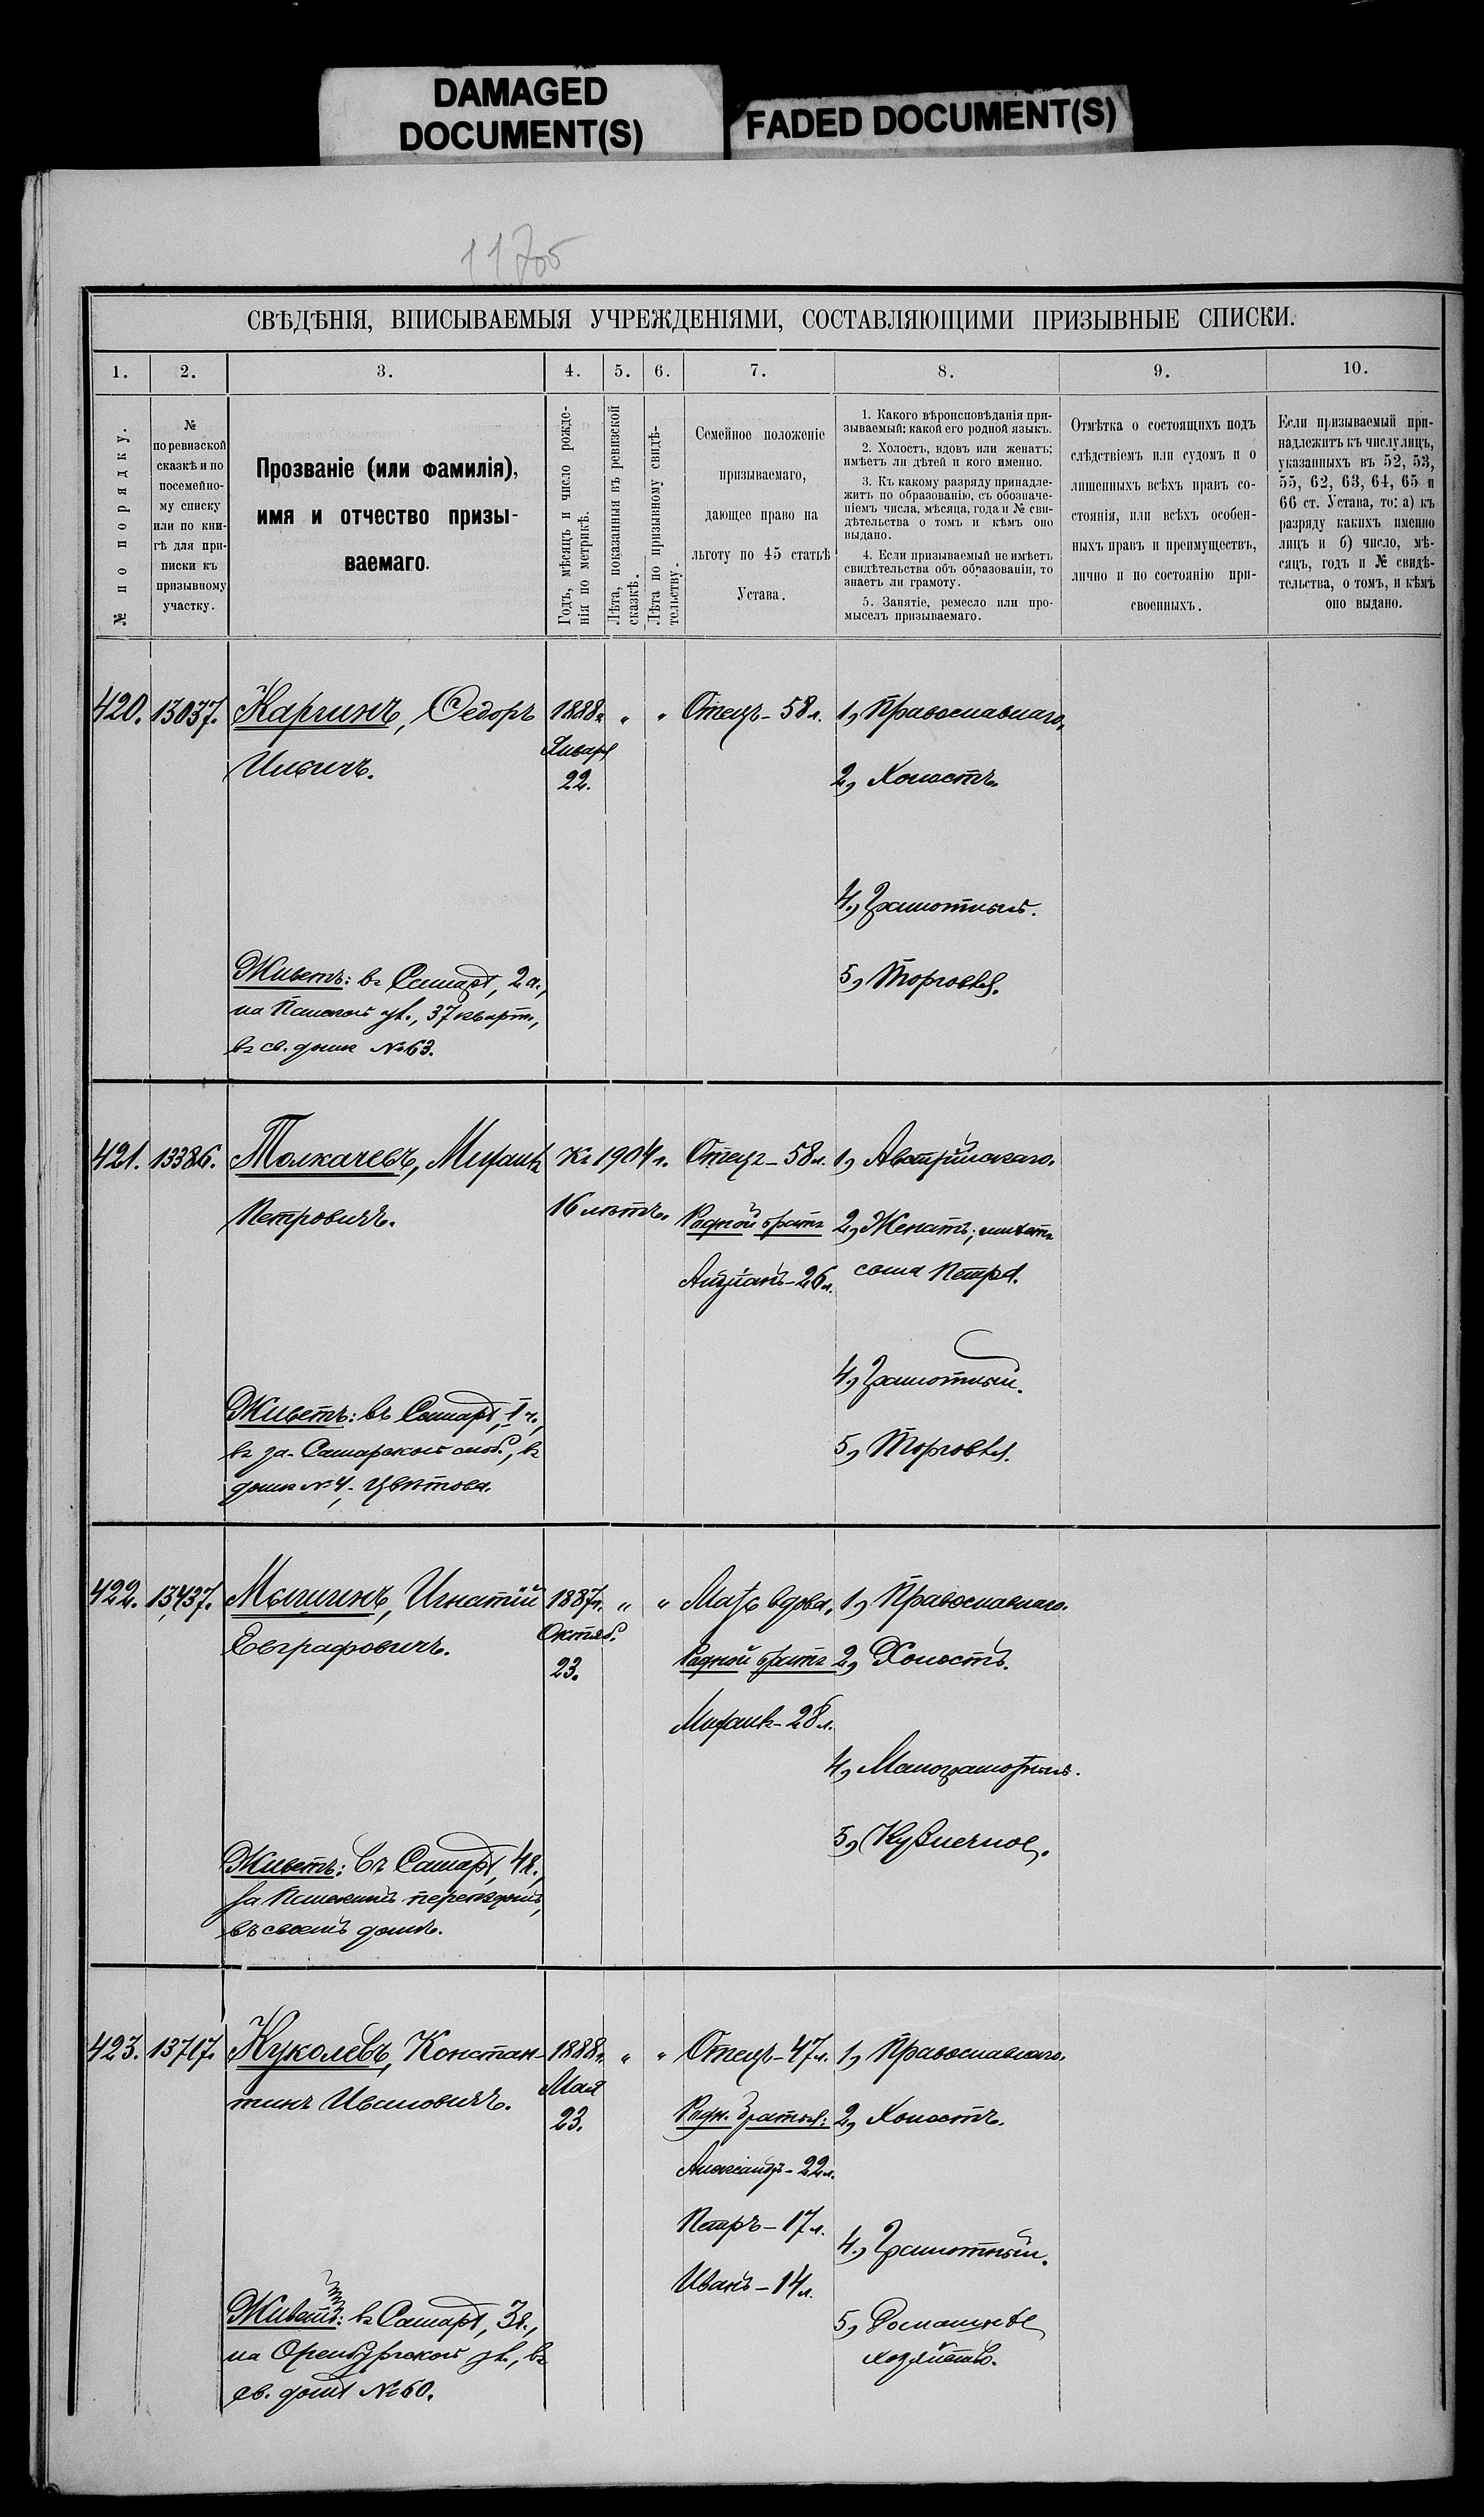 DAMAGED
DOCUMENT(S)
FADED DOCUMENT(S)
СВѢДѢНІЯ, ВПИСЫВАЕМЫЯ УЧРЕЖДЕНІЯМИ, СОСТАВЛЯЮЩИМИ ПРИЗЫВНЫЕ СПИСКИ.
1. 2. 3. 4. 5. 6. 7. 8. 9. 10.
№ по порядку.
№
по ревизской
сказкѣ и по
посемейно-
му списку
или по кни-
гѣ для при-
писки къ
призывному
участку.
Прозваніе (или фамилія),
имя и отчество призы-
ваемаго.
Годъ, мѣсяцъ и число рожде-
нія по метрикѣ.
Лѣта, показанныя въ ревизской
сказкѣ.
Лѣта по призывному свидѣ-
тельству.
Семейное положеніе
призываемаго,
дающее право на
льготу по 45 статьѣ
Устава.
1. Какого вѣроисповѣданія при-
зываемый; какой его родной языкъ.
2. Холостъ, вдовъ или женатъ;
имѣетъ ли дѣтей и кого именно.
3. Къ какому разряду принадле-
житъ по образованію, съ обозначе-
ніемъ числа, мѣсяца, года и № сви-
дѣтельства о томъ и кѣмъ оно
выдано.
4. Если призываемый не имѣетъ
свидѣтельства объ образованіи, то
знаетъ ли грамоту.
5. Занятіе, ремесло или про-
мыселъ призываемаго.
Отмѣтка о состоящихъ подъ
слѣдствіемъ или судомъ и о
лишенныхъ всѣхъ правъ со-
стоянія, или всѣхъ особен-
ныхъ правъ и преимуществъ,
лично и по состоянію при-
своенныхъ.
Если призываемый при-
надлежитъ къ числу лицъ,
указанныхъ въ 52, 53,
55, 62, 63, 64, 65 и
66 ст. Устава, то: а) къ
разряду какихъ именно
лицъ и б) число, мѣ-
сяцъ, годъ и № свидѣ-
тельства, о томъ, и кѣмъ
оно выдано.
420. 13037. Каргинъ, Ѳедоръ
Ильичъ.
1888г. " "
Января
22.
Отецъ - 58 л.
1, Православнаго,
2, Холостъ.
4, Грамотный.
5, Торговля.
Живетъ: въ Самарѣ, 2 ч.,
на Панской ул., 37 кварт.,
въ св. домѣ № 63.
421. 13386. Толкачевъ, Михаилъ
Петровичъ.
Къ 1904 г.
16 лѣтъ.
Отецъ - 58 л.
Родной братъ
1, Австрійскаго.
2, Женатъ; имѣетъ
сына Петра.
4, Грамотный.
5, Торговля.
Живетъ: въ Самарѣ, 1 ч.,
въ за-Самарской слоб., въ
домѣ № 4, Цвѣтова.
422. 13437. Мычигинъ, Игнатій
Евграфовичъ.
1887г. " "
Октяб.
23.
Мать вдова.
Родной братъ
Михаилъ - 28 л.
1, Православнаго.
2, Холостъ.
4, Малограмотный.
5, Кузнечное.
Живетъ: въ Самарѣ, 4 ч.,
за Панскимъ переѣздомъ,
въ своемъ домѣ.
423. 13717. Куколевъ, Констан-
тинъ Ивановичъ.
1888г. " "
Мая
23.
Отецъ - 47 л.
Родн. братья:
Александръ - 22 л.
Петръ - 17 л.
Иванъ - 14 л.
1, Православнаго.
2, Холостъ.
4, Грамотный.
5, Домашнее
хозяйство.
Живетъ: въ Самарѣ, 3 ч.,
на Оренбургской ул., въ
св. домѣ № 60.